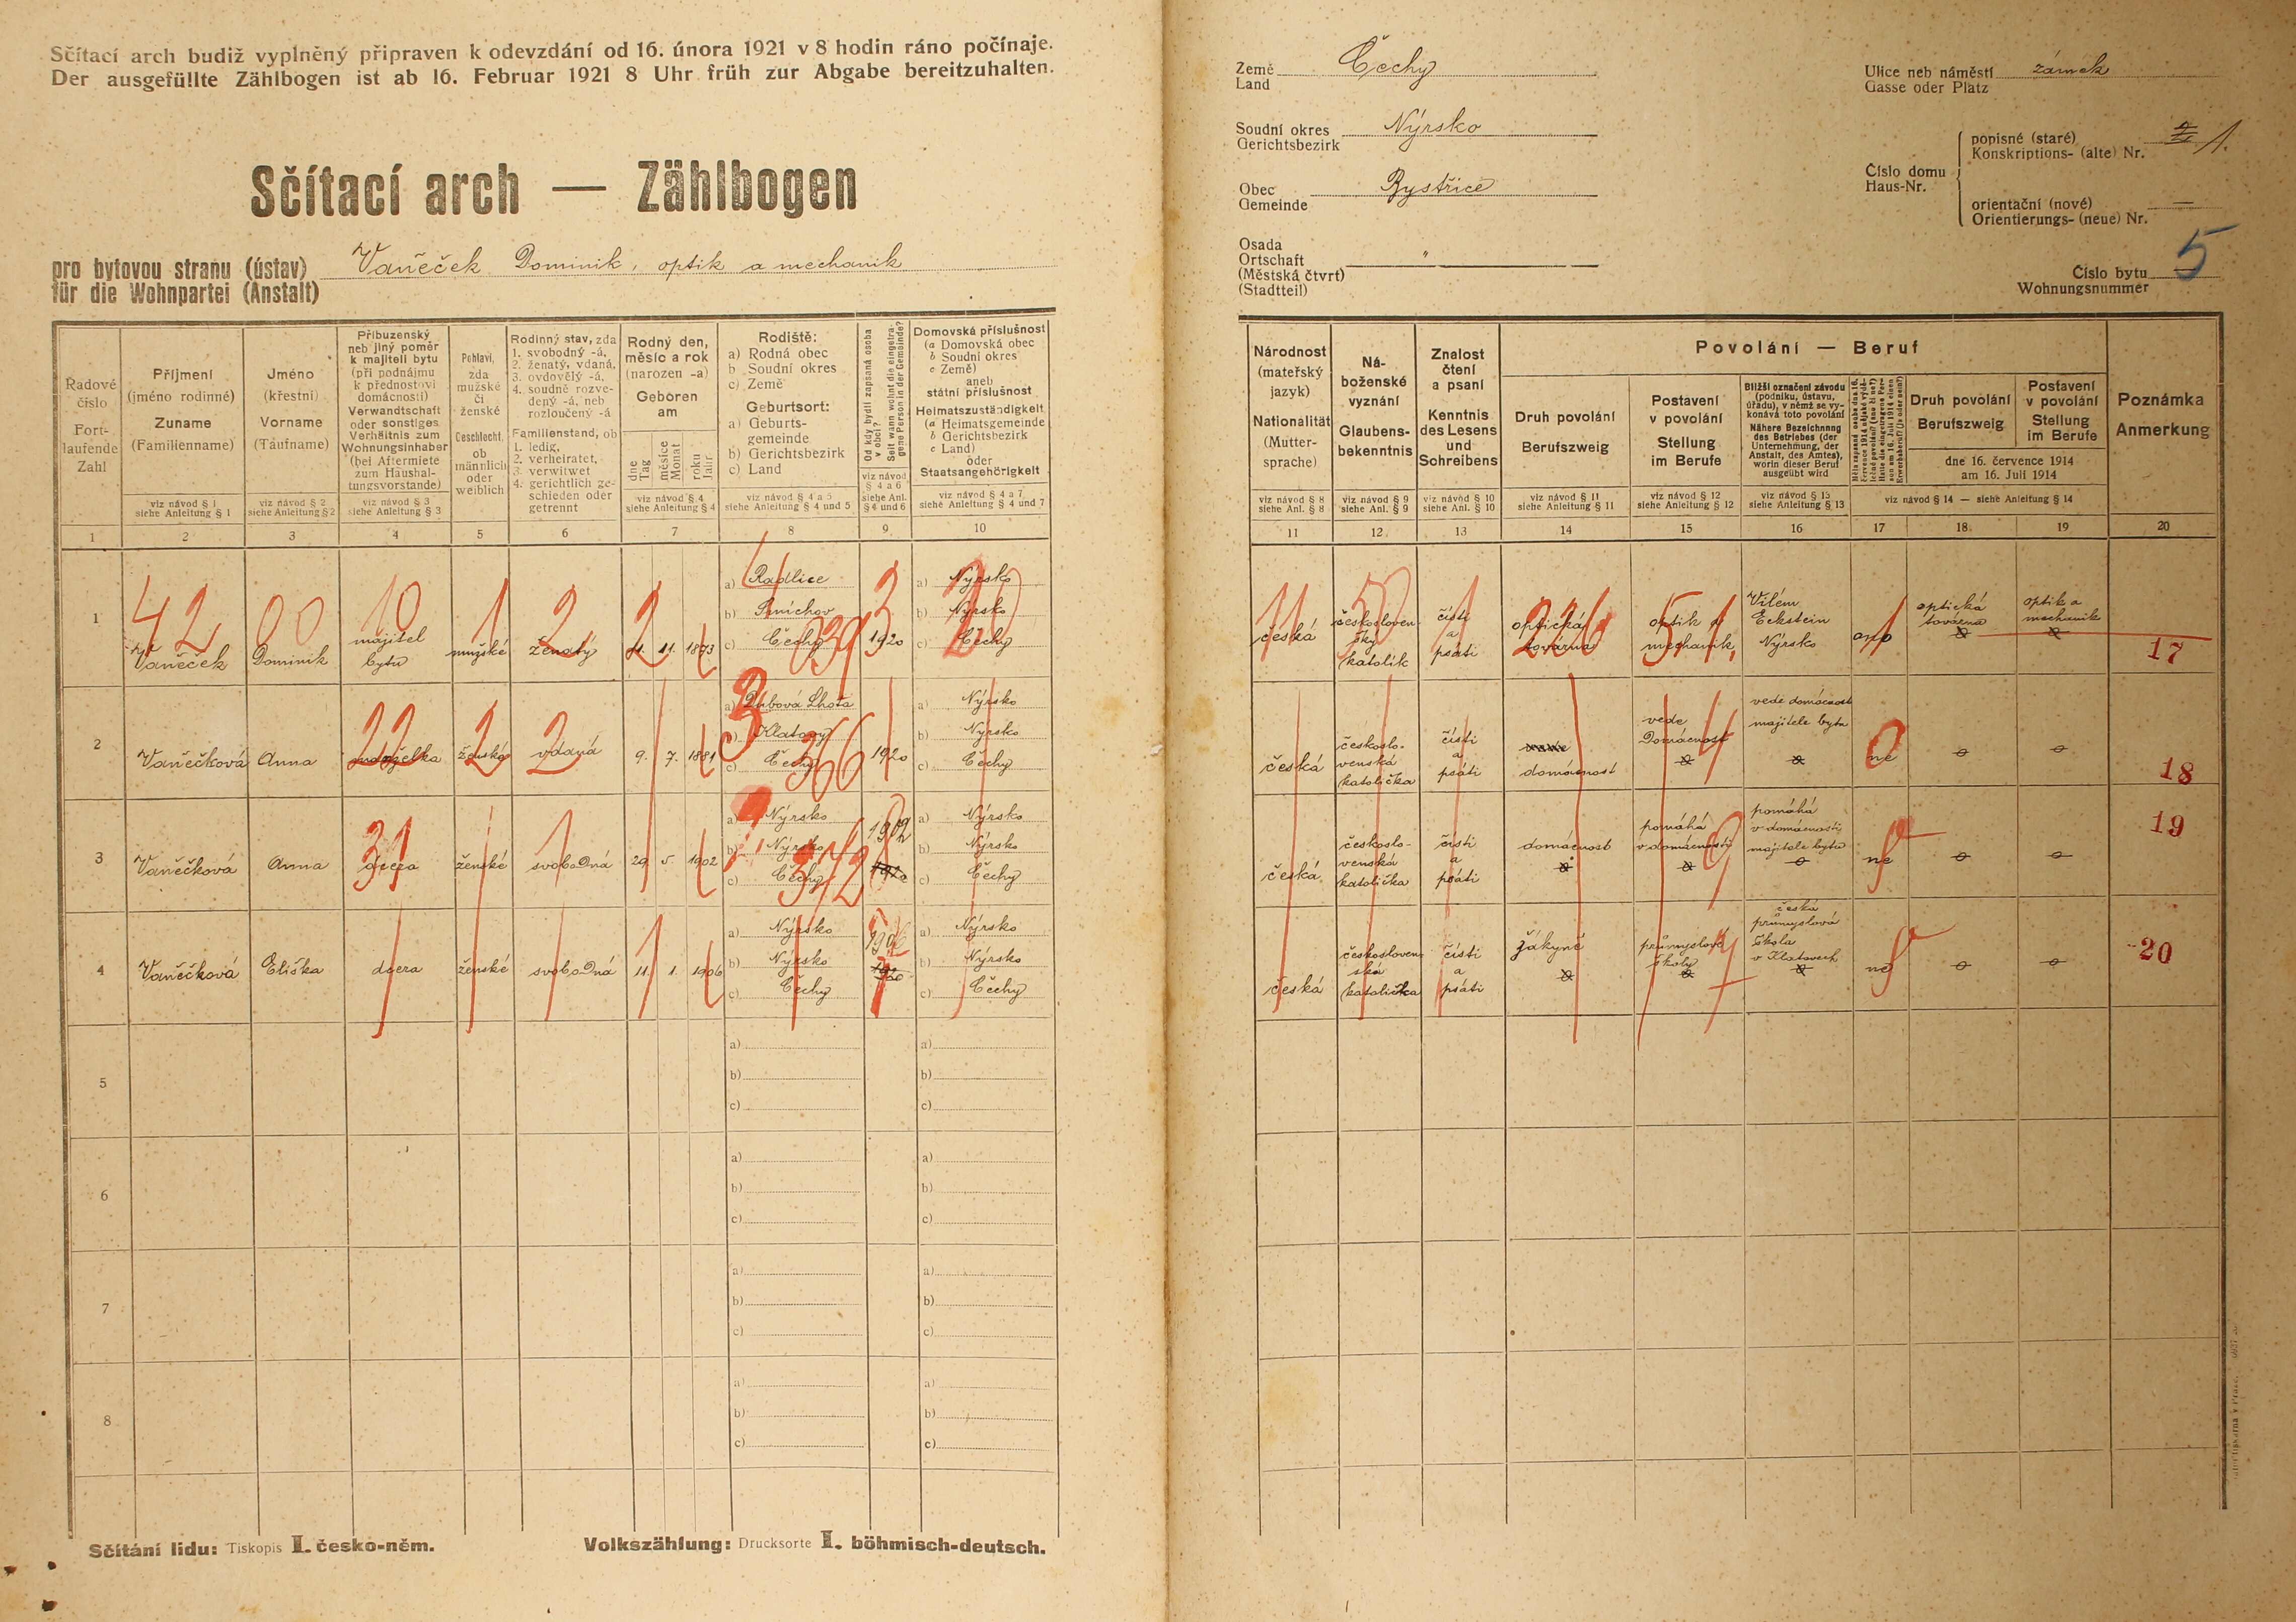 Sčítací arch budiž vyplněný připraven k odevzdání od 16. února 1921 v 8 hodin ráno počínaje.
Der ausgefüllte Zählbogen ist ab 16. Februar 1921 8 Uhr früh zur Abgabe bereitzuhalten.
Sčítací arch — Zählbogen
pro bytovou stranu (ústav) Vaněček Dominik, optik a mechanik
für die Wohnpartei (Anstalt)
Země Čechy
Land
Soudní okres Nýrsko
Gerichtsbezirk
Obec Bystřice
Gemeinde
Osada
Ortschaft "
(Městská čtvrť)
(Stadtteil)
Ulice neb náměstí zámek
Gasse oder Platz
Číslo domu
Haus-Nr.
popisné (staré) 1.
Konskriptions- (alte) Nr.
orientační (nové) —
Orientierungs- (neue) Nr.
Číslo bytu 5
Wohnungsnummer
Řadové
číslo
Fort-
laufende
Zahl
Příjmení
(jméno rodinné)
Zuname
(Familienname)
viz návod § 1
siehe Anleitung § 1
Jméno
(křestní)
Vorname
(Taufname)
viz návod § 2
siehe Anleitung § 2
Příbuzenský
neb jiný poměr
k majiteli bytu
(při podnájmu
k přednostovi
domácnosti)
Verwandtschaft
oder sonstiges
Verhältnis zum
Wohnungsinhaber
(bei Aftermiete
zum Haushal-
tungsvorstande)
viz návod § 3
siehe Anleitung § 3
Pohlaví,
zda
mužské
či
ženské
Geschlecht,
ob
männlich
oder
weiblich
Rodinný stav, zda
1. svobodný -á,
2. ženatý, vdaná,
3. ovdovělý -á,
4. soudně rozve-
dený -á, neb
rozloučený -á
Familienstand, ob
1. ledig,
2. verheiratet,
3. verwitwet
4. gerichtlich ge-
schieden oder
getrennt
Rodný den,
měsíc a rok
(narozen -a)
Geboren
am
dne
Tag
měsíce
Monat
roku
Jahr
viz návod § 4
siehe Anleitung § 4
Rodiště:
a) Rodná obec
b) Soudní okres
c) Země
Geburtsort:
a) Geburts-
gemeinde
b) Gerichtsbezirk
c) Land
viz návod § 4 a 5
siehe Anleitung § 4 und 5
Od kdy bydlí zapsaná osoba
v obci?
Seit wann wohnt die eingetra-
gene Person in der Gemeinde?
viz návod
§ 4 a 6
siehe Anl.
§ 4 und 6
Domovská příslušnost
(a Domovská obec
b Soudní okres
c Země)
aneb
státní příslušnost
Heimatszuständigkeit
(a Heimatsgemeinde
b Gerichtsbezirk
c Land)
oder
Staatsangehörigkeit
viz návod § 4 a 7
siehe Anleitung § 4 und 7
Národnost
(mateřský
jazyk)
Nationalität
(Mutter-
sprache)
viz návod § 8
siehe Anl. § 8
Ná-
boženské
vyznání
Glaubens-
bekenntnis
viz návod § 9
siehe Anl. § 9
Znalost
čtení
a psaní
Kenntnis
des Lesens
und
Schreibens
viz návod § 10
siehe Anl. § 10
Povolání — Beruf
Druh povolání
Berufszweig
viz návod § 11
siehe Anleitung § 11
Postavení
v povolání
Stellung
im Berufe
viz návod § 12
siehe Anleitung § 12
Bližší označení závodu
(podniku, ústavu,
úřadu), v němž se vy-
konává toto povolání
Nähere Bezeichnung
des Betriebes (der
Unternehmung, der
Anstalt, des Amtes),
worin dieser Beruf
ausgeübt wird
viz návod § 13
siehe Anleitung § 13
Druh povolání
Berufszweig
Postavení
v povolání
Stellung
im Berufe
dne 16. července 1914
am 16. Juli 1914
viz návod § 14 — siehe Anleitung § 14
Poznámka
Anmerkung
1 2 3 4 5 6 7 8 9 10 11 12 13 14 15 16 17 18 19 20
1 Vaněček Dominik majitel bytu mužské ženatý 11. 1873
a) Radlice
b) Smíchov
c) Čechy
1920
a) Nýrsko
b) Nýrsko
c) Čechy
česká
českosloven
ský
katolík
čísti
a
psáti
optická
továrna
optik a
mechanik
Vilém
Eckstein
Nýrsko
ano
optická
továrna
optik a
mechanik
17
2 Vaněčková Anna manželka ženské vdaná 9. 7. 1881
a) Dubová Lhota
b) Klatovy
c) Čechy
1920
a) Nýrsko
b) Nýrsko
c) Čechy
česká
českoslo-
venská
katolička
čísti
a
psáti
domácnost
vede
domácnost
vede domácnost
majitele bytu
ne
18
3 Vaněčková Anna dcera ženské svobodná 29. 5. 1902
a) Nýrsko
b) Nýrsko
c) Čechy
a) Nýrsko
b) Nýrsko
c) Čechy
česká
českoslo-
venská
katolička
čísti
a
psáti
domácnost
pomáhá
v domácnosti
pomáhá
v domácnosti
majitele bytu
ne
19
4 Vaněčková Eliška dcera ženské svobodná 11. 1. 1906
a) Nýrsko
b) Nýrsko
c) Čechy
a) Nýrsko
b) Nýrsko
c) Čechy
česká
českosloven
ská
katolička
čísti
a
psáti
žákyně
průmyslové
školy
česká
průmyslová
škola
v Klatovech
ne
20
5 a) a)
b) b)
c) c)
6 a) a)
b) b)
c) c)
7 a) a)
b) b)
c) c)
8 a) a)
b) b)
c) c)
Sčítání lidu: Tiskopis I. česko-něm.
Volkszählung: Drucksorte I. böhmisch-deutsch.